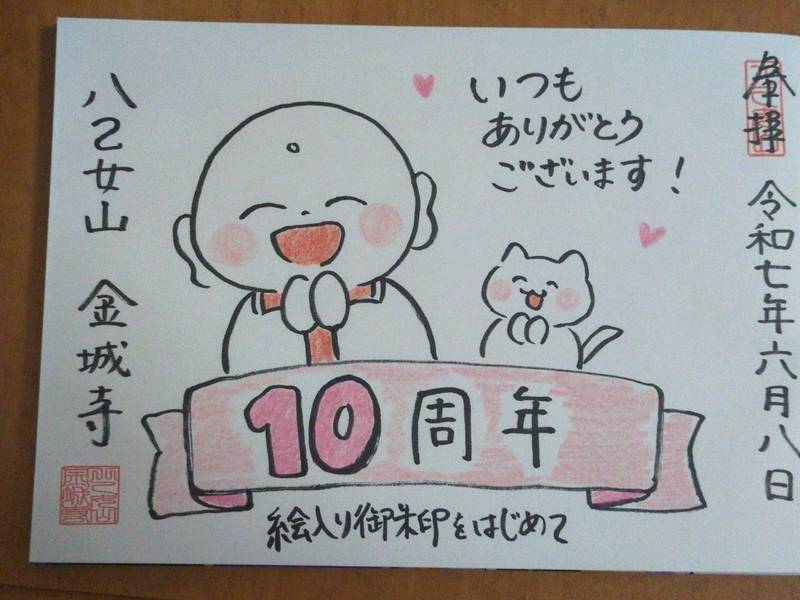 奉拝
令和七年六月八日
いつも
ありがとう
ございます!
10周年
絵入り御朱印をはじめて
八乙女山 金城寺